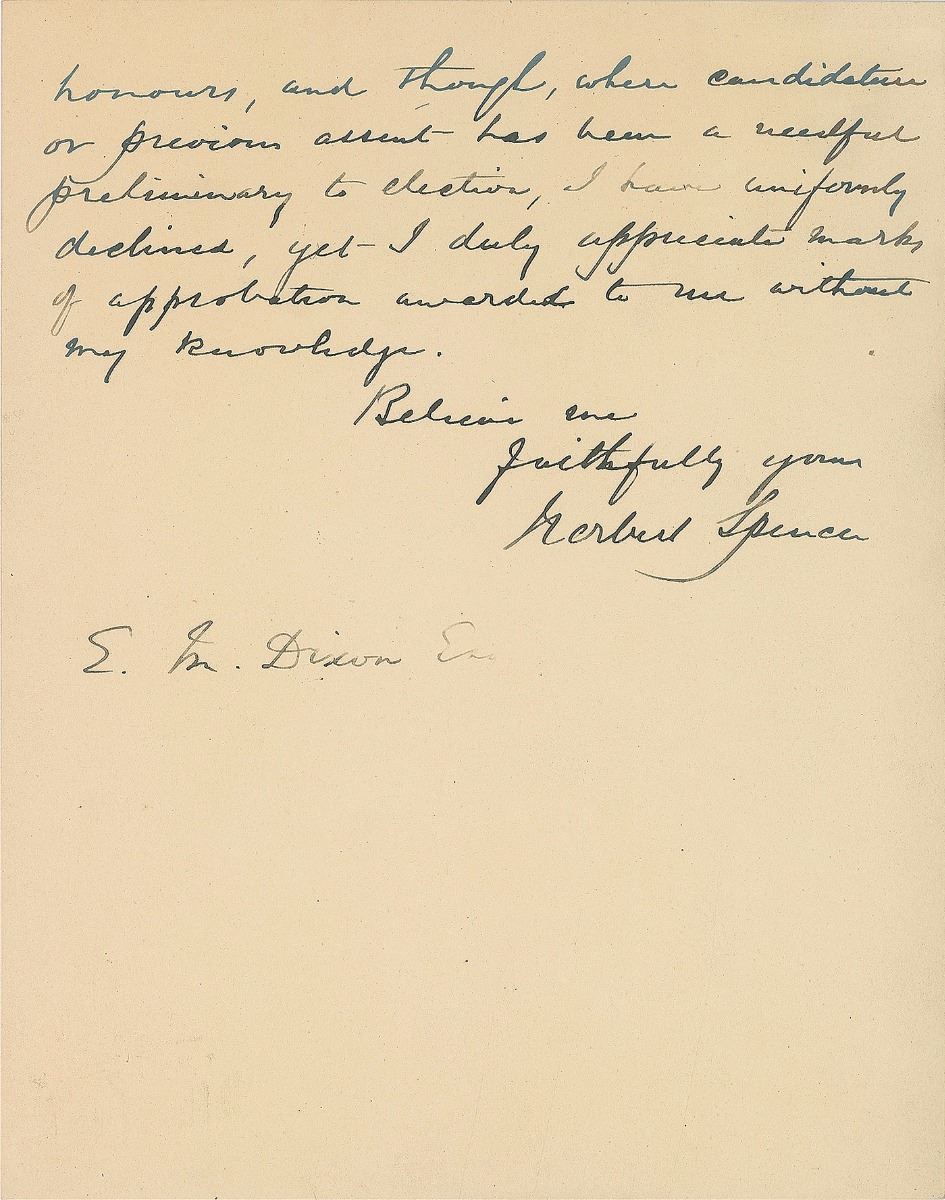 honours, and though, where candidature
or previous assent has been a needful
preliminary to election, I have uniformly
declined, yet I duly appreciate marks
of approbation awarded to me without
my knowledge.
Believe me
faithfully yours
Herbert Spencer
E. M. Dixon Esq